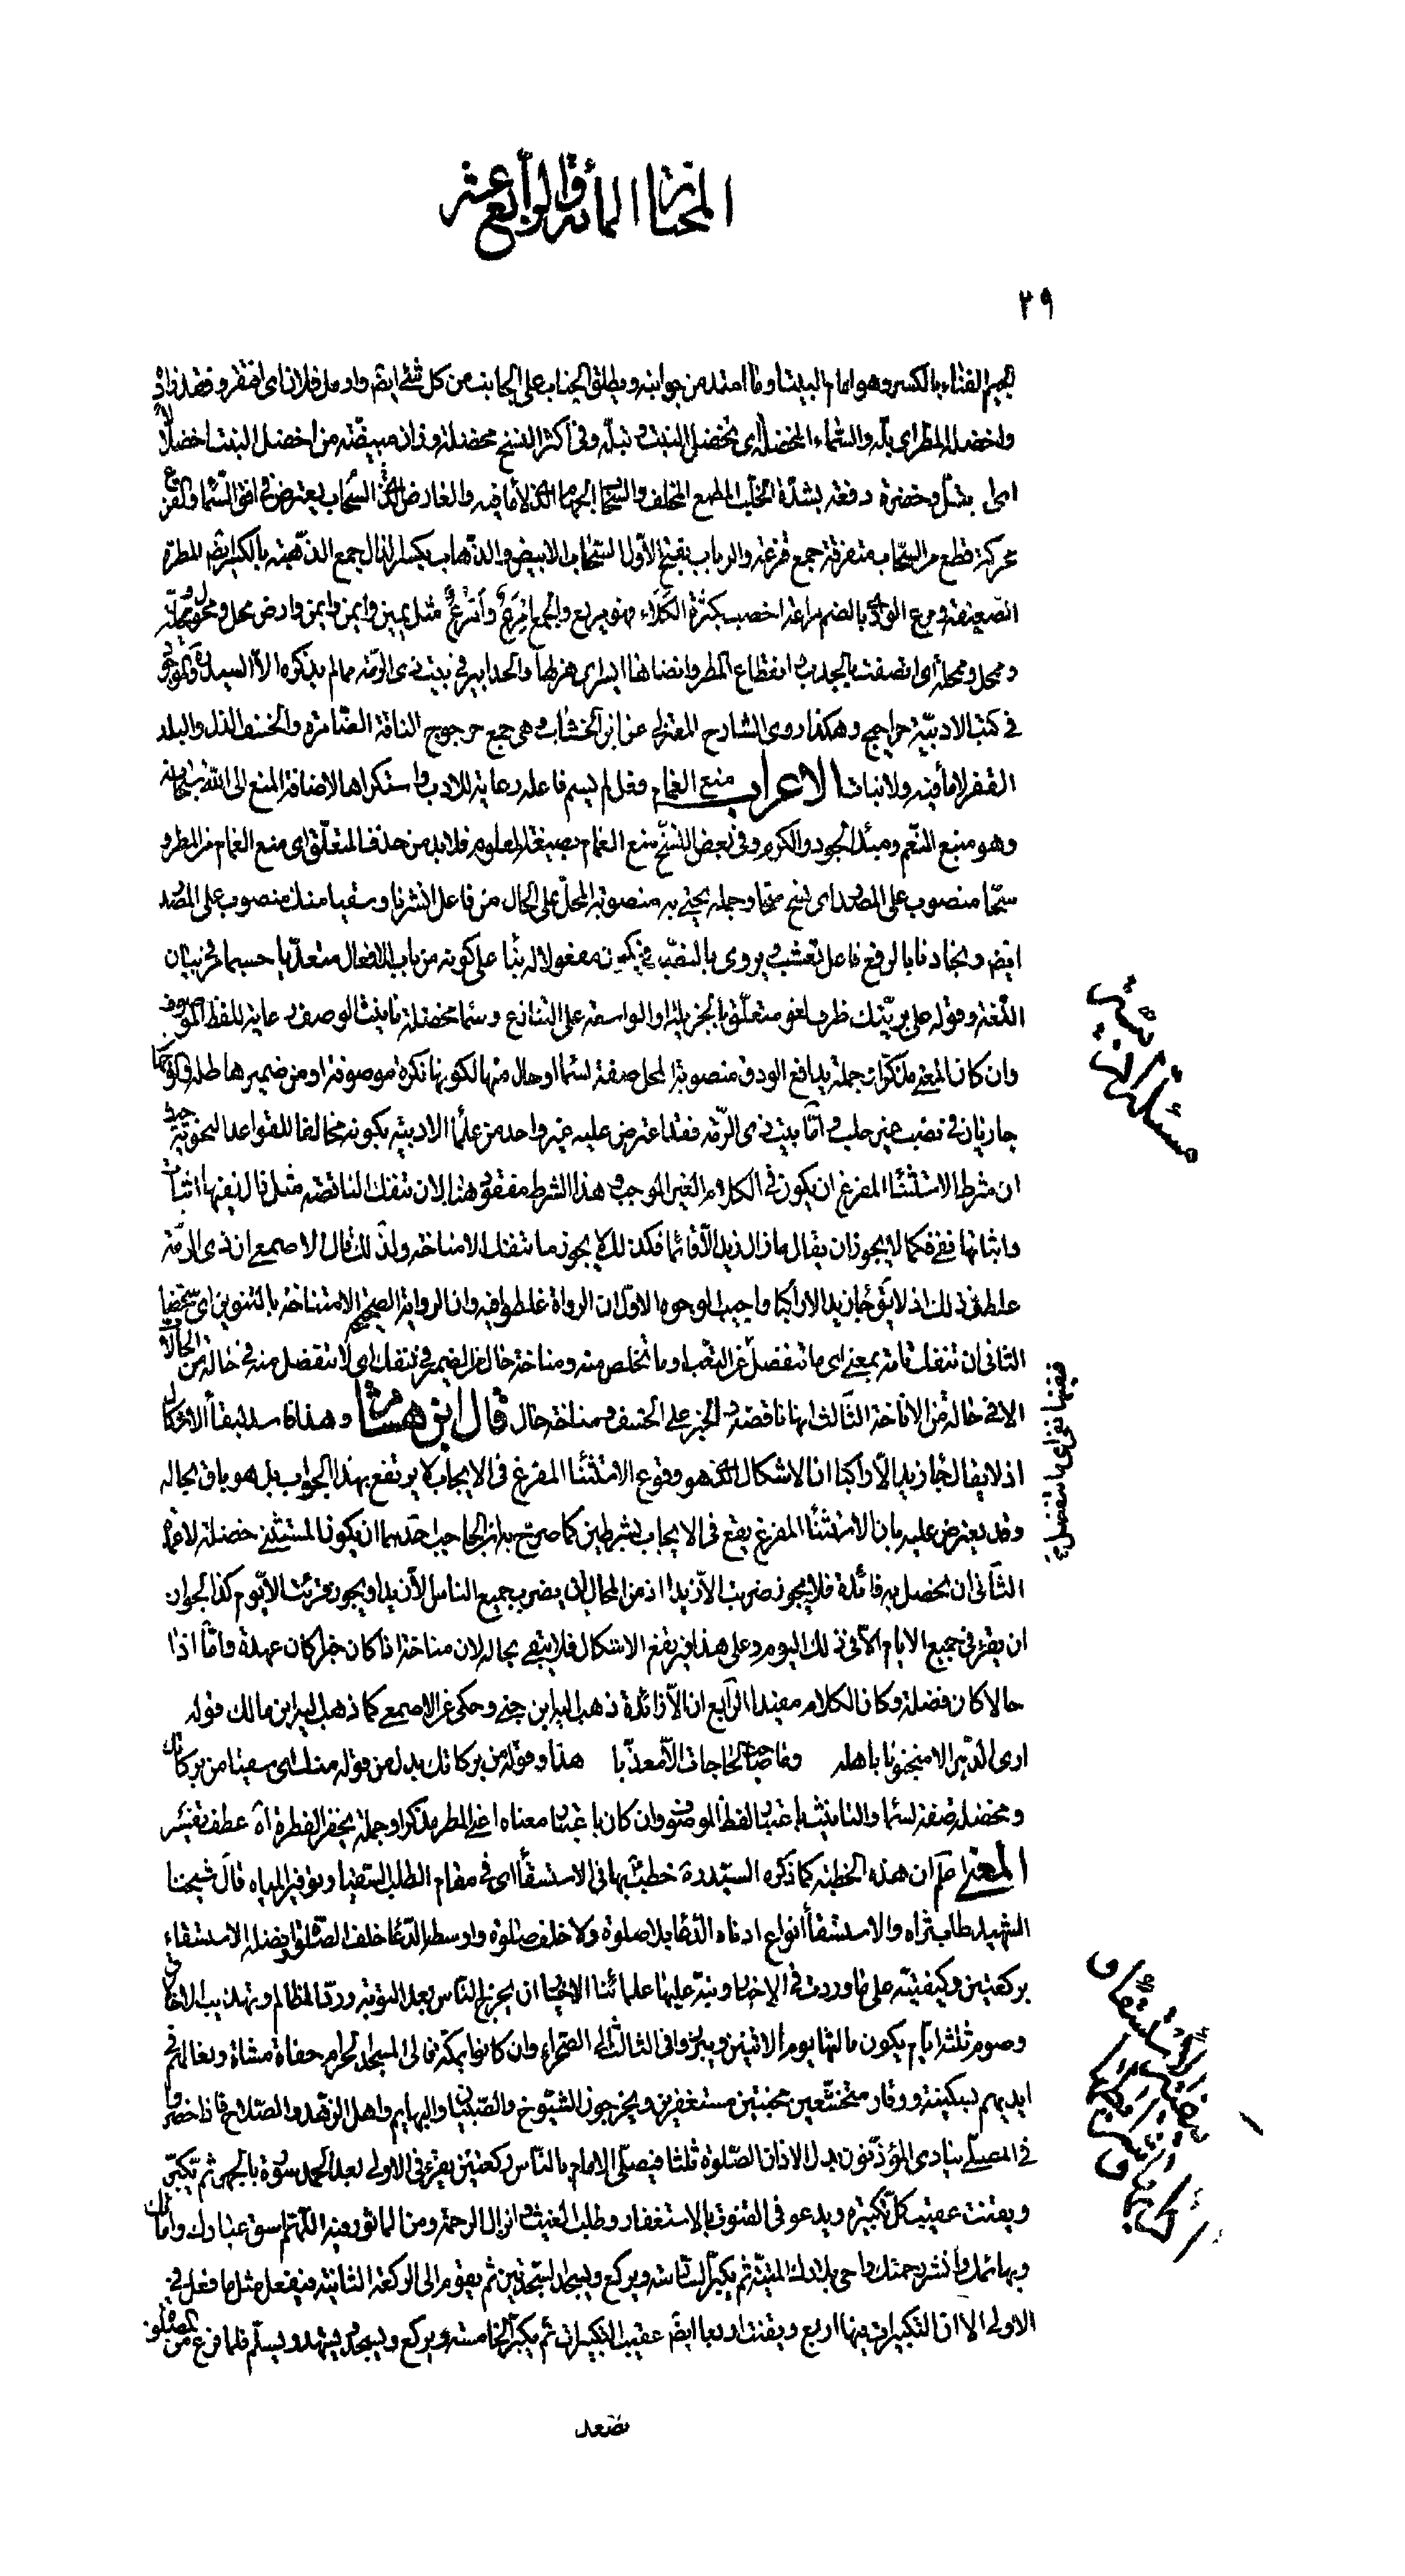 المختار المأة والرابع عشر
٢٩
الجيم الفناء بالكسر وهو امام البيت وما امتد من جوانبه ويطلق الجناب على الجانب من كل شئ ايضا وارمل فلان اى افتقر وفقد زاده
واخضله المطر اى بلّه والسّماء المخضلة اى تخضل النبت وتبلّه وفى أكثر النسخ مخضلة وزان مبيضّة من اخضل النبت اخضلالا
اى ابتلّ وحضرة دفعة بشدّة الخلّب المطمع المخلف والسحاب الجهام الذى لا ماء فيه والعارض السّحاب يعترض فى افق السّماء والقزع
محركة قطع من السّحاب متفرقة جمع قزعة والرباب بفتح الأول السّحاب الابيض والذّهاب بكسر الذال جمع الذّهبة بالكسر ايضا المطرة
الضعيفة ومرع الوادى بالضم مراعة اخصب بكثرة الكلاء فهو مريع والجمع امرع وأمراع مثل يمين وايمن وايمان وارض محل ومحول
وممحل وممحلة أى اتصفت بالجدب وانقطاع المطر وانضاها السير اى هزلها والحدابير فى بيت ذى الرّمة مما لم يذكره الاّ السيد ره والموجود
فى كتب الادبيّة حراجيج وهكذا روى الشارح المعتزلى عن ابن الخشّاب وهى جمع حرجوج الناقة الضّامرة والخسف الذل والبلد
القفر لا ماء فيه ولا نبات الاعراب منع الغمام فعل لم يسم فاعله رعاية للادب واستكراها لاضافة المنع الى الله سبحانه
وهو منبع النّعم ومبدء الجود والكرم وفى بعض النسخ منع الغمام بصيغة المعلوم فلا بد من حذف المتعلّق اى منع الغمام من المطر و
سحّا منصوب على المصدر اى يسح سحّا وجملة تحيى به منصوبة المحلّ على الحال من فاعل انشر وسقيا منك منصوب على المصدر
ايضا ونجادنا بالرفع فاعل تعشب ويروى بالنصب فيكون مفعولا له بناء على كونه من باب الافعال متعدّيا حسبما مر فى بيان
اللّغة وقوله على بريّتك ظرف لغو متعلّق بالجزيلة او الواسعة على التنازع وسماء مخضلة تانيث الوصف رعاية للفظ الموصوف
وان كان المعنى مذكرا وجملة يدافع الودق منصوبة المحل صفة لسماء او حال منها لكونها نكرة موصوفة او من ضمير هاطلة وكونها
جاريان فى نصب غير خلب وامّا بيت ذى الرّمّة فقد اعترض عليه غير واحد من علماء الادبية بكونه مخالفا للقواعد النحوية حيث
ان شرط الاستثناء المفرغ ان يكون فى الكلام الغير الموجب وهذا الشرط مفقود هنا لان تنفك الناقصة مثل زال نفيها اثبات
واثباتها نفى فكما لا يجوز ان يقال ما زال زيد الاّ قائما فكذلك لا يجوز ما تنفك الا مناخة ولذلك قال الاصمعى ان ذى الرمة
غلط فى ذلك اذ لا يق جاء زيد الا راكبا واجيب بوجوه الاول ان الرواة غلطوا فيه وان الرواية الصحيح الا مناخة بالتنوين اى شخصا
الثانى ان تنفك تامة بمعنى اى ما تنفصل عن التعب او ما تخلص منه ومناخة حال من الضمير فى تنفك اى لا تنفصل منه فى حالة من الحالات
الا فى حالة من الاناخة الثّالث انها ناقصة والخبر على الخسف ومناخة حال قال ابن هشام وهذا فاسد لبقاء الاشكال
اذ لا يقال جاء زيد الاّ راكبا اذ الاشكال الذى هو وقوع الاستثناء المفرغ فى الايجاب لا يرتفع بهذا الجواب بل هو باق بحاله
وقد يعترض عليه بان الاستثناء المفرغ يقع فى الايجاب بشرطين كما صرح به ابن الحاجب احدهما ان يكون المستثنى فضلة لا عمدة
الثانى ان يحصل به فائدة فلا يجوز ضربت الاّ زيدا اذ من المحال ان يضرب جميع الناس الاّ زيدا ويجوز قرئت الاّ يوم كذا لجواز
ان يقرء فى جميع الايام الاّ فى ذلك اليوم وعلى هذا فيرتفع الاشكال فلا يبقى بحاله لان مناخة اذا كان خبرا كان عمدة وامّا اذا
حالا كان فضلة وكان الكلام مفيدا الرّابع ان الاّ زائدة ذهب اليه ابن جنى وحكى عن الاصمعى كما ذهب اليه ابن مالك قوله
ارى الدّهر الا منجنونا باهله وما صاحب الحاجات الاّ معذّبا هذا وقوله من بركاتك بدل من قوله منك اى سقيا من بركاتك
ومخضلة صفة لسماء والتانيث باعتبار لفظ الموصوف وان كان باعتبار معناه اعنى المطر مذكرا وجملة يحفز القطرة آه عطف تفسير
المعنى اعلم ان هذه الخطبة كما ذكره السيّد ره خطبة بها فى الاستسقاء اى فى مقام الطلب للسقيا وتوفير المياه قال شيخنا
الشهيد طاب ثراه والاستسقاء انواع ادناه الدّعا بلا صلوة ولا خلف صلوة واوسطه الدّعا خلف الصّلوة وافضله الاستسقاء
بركعتين وكيفيّته على ما وردت فى الاخبار ونبّه عليها علمائنا الاخيار ان يخرج النّاس بعد التوبة وردّ المظالم وتهذيب الاخلاق
وصوم ثلثة ايام يكون ثالثها يوم الاثنين ويبرزوا فى الثالث الى الصحراء وان كانوا بمكة فالى المسجد الحرام حفاة مشاة ونعالهم فى
ايديهم بسكينة ووقار متخشّعين مخبتين مستغفرين ويخرجون الشيوخ والصّبيان والبهايم واهل الزهد والصّلاح فاذا حضروا
فى المصلّى ينادى المؤذّنون بدل الاذان الصّلوة ثلثا فيصلّى الامام بالنّاس ركعتين يقرء فى الاولى بعد الحمد سورة بالجهر ثم يكبّر
ويقنت عقيب كلّ تكبيرة ويدعو فى القنوت بالاستغفار وطلب الغيث وانزال الرحمة ومن الماثور فيه اللّهم اسق عبادك واماءك
وبهائمك وانشر رحمتك واحى بلادك الميّتة ثم يكبّر السّادسة ويركع ويسجد السّجدتين ثم يقوم الى الركعة الثانية فيفعل مثل ما فعل فى
الاولى الا ان التكبيرات فيها اربع ويقنت اربعا ايضا عقيب التكبيرات ثم يكبّر الخامسة ويركع ويسجد ويتشهد ويسلّم فلما فرغ من الصلوة
فنفيها نفى اى ما تنفصل
يصعد